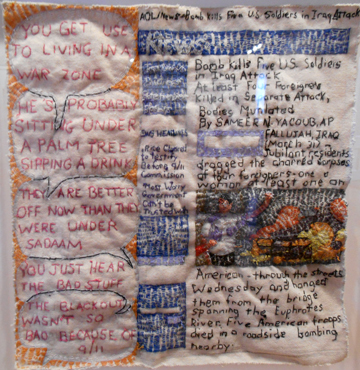 AOL/News-Bomb kills Five US Soldiers in Iraq Attack
YOU GET USE
TO LIVING IN A
WAR ZONE
HE'S PROBABLY
SITTING UNDER
A PALM TREE
SIPPING A DRINK
THEY ARE BETTER
OFF NOW THAN THEY
WERE UNDER
SADAAM
YOU JUST HEAR
THE BAD STUFF
THE BLACKOUT
WASN'T SO
BAD BECAUSE OF
9/11
Rice
to Testify
Before 9/11
Commission
Most Worry
Government
Can't be
Trusted
Bomb Kills Five U.S. Soldiers
in Iraq Attack
At least Four Foreigners
Killed in Separate Attack,
Bodies Mutilated
By SAMEER N. YACOUB, AP
FALLUJAH, IRAQ
(March 31)
Jubilant residents
dragged the charred corpses
of four foreigners-one a
woman, at least one an
American - through the streets
Wednesday and hanged
them from the bridge
spanning the Euphrates
River. Five American troops
died in a roadside bombing
nearby.